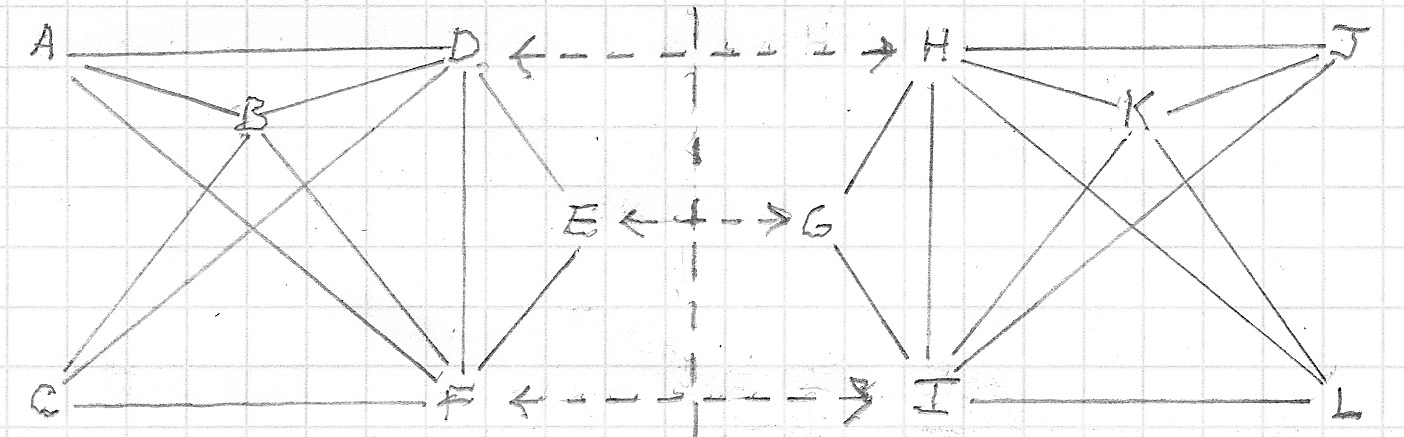 A D H J
B K
E G
C F I L